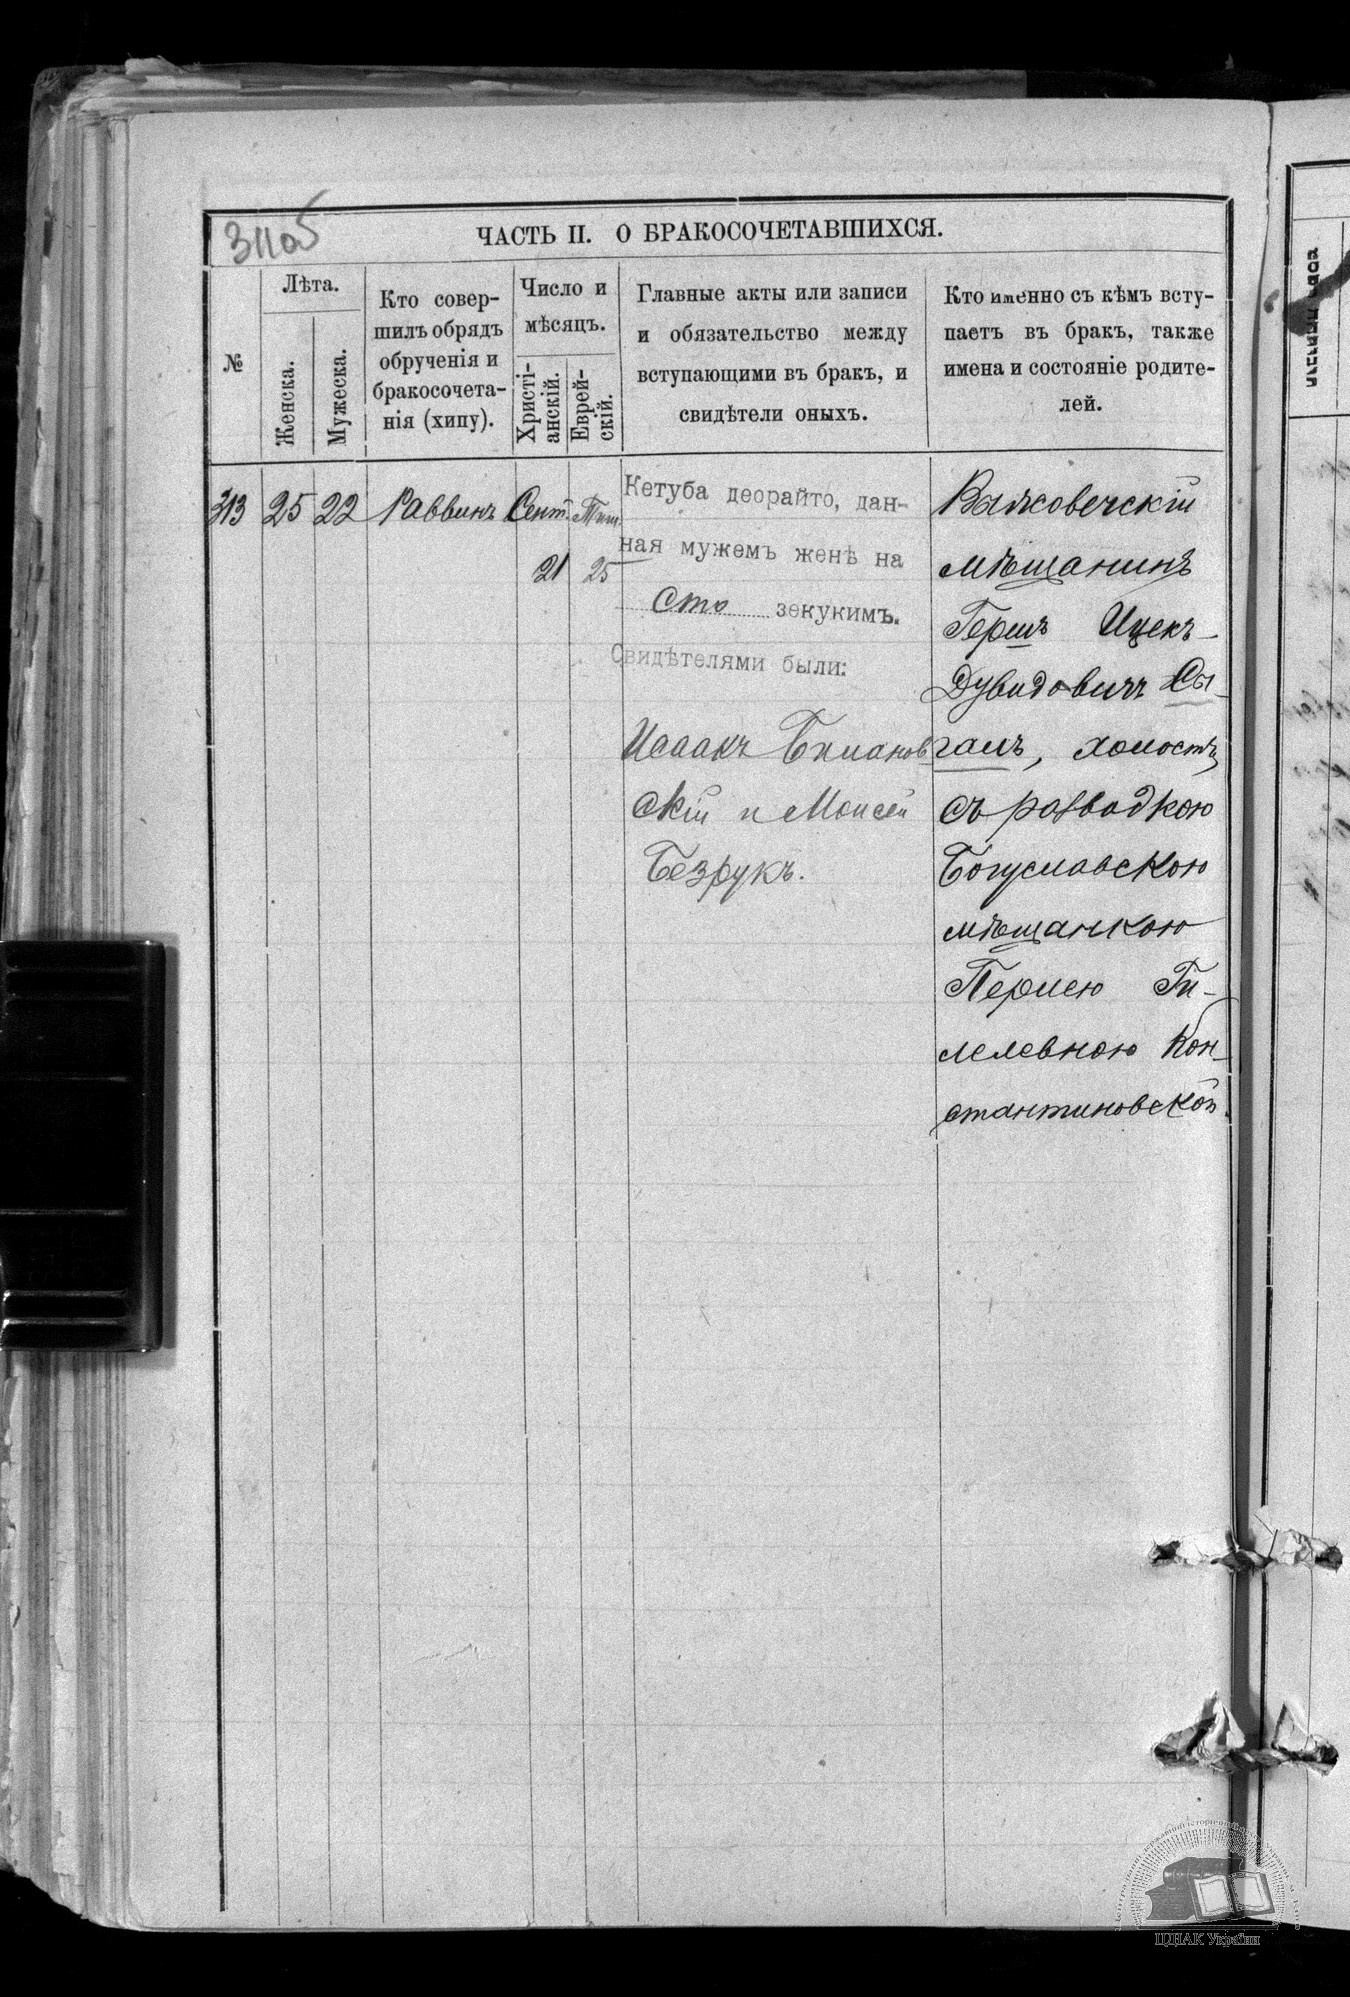 311об
ЧАСТЬ II. О БРАКОСОЧЕТАВШИХСЯ.
№
Лѣта.
Женска.
Мужеска.
Кто совер-
шилъ обрядъ
обрученія и
бракосочета-
нія (хипу).
Число и
мѣсяцъ.
Христі-
анскій.
Еврей-
скій.
Главные акты или записи
и обязательство между
вступающими въ брак, и
свидѣтели оныхъ.
Кто именно съ кѣмъ всту-
паетъ въ бракъ, также
имена и состояніе родите-
лей.
313
25
22
Раввинъ
Сент.
21
Тиш.
25
Кетуба деорайто, дан-
ная мужемъ женѣ на
Сто зекукимъ.
Свидѣтелями были:
Исаакъ
скій и Моисей
Безрукъ.
мѣщанинъ
Гершъ Ицекъ-
Дувидовичъ Сы-
галъ, холостъ,
съ разводкою
Богуславскою
мѣщанкою
Перлею Ги-
лелевною Кон-
стантиновской.
ЦДІАК України